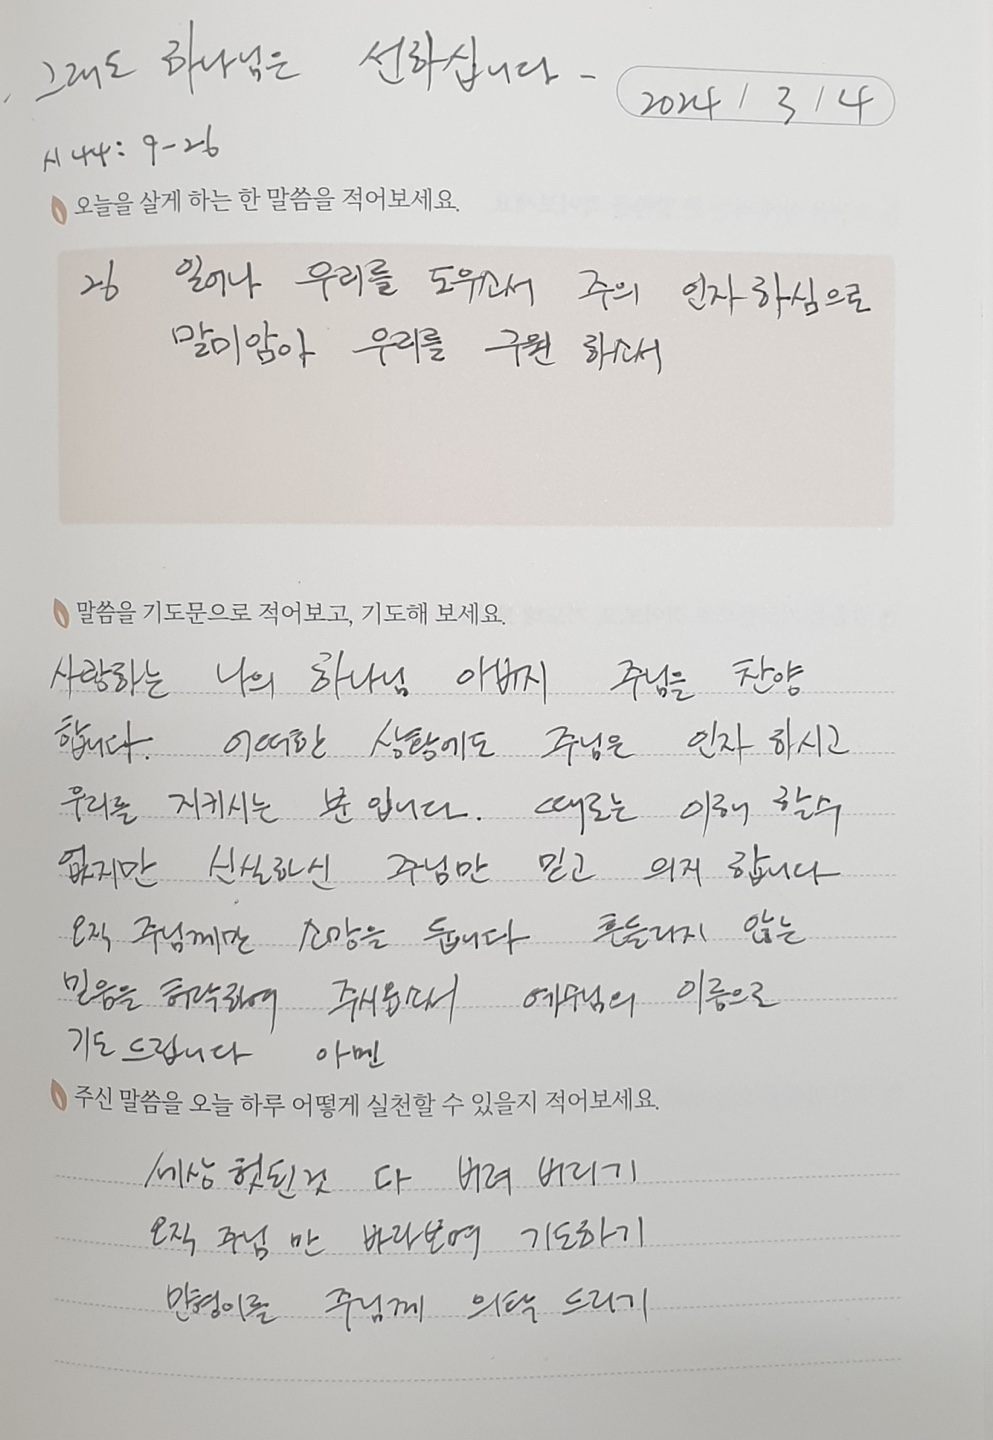 그래도 하나님은 선하십니다 -
2024 / 3 / 4
시 44: 9-26
오늘을 살게 하는 한 말씀을 적어보세요.
26 일어나 우리를 도우소서 주의 인자하심으로
말미암아 우리를 구원 하소서
말씀을 기도문으로 적어보고, 기도해 보세요.
사랑하는 나의 하나님 아버지 주님을 찬양
합니다. 어떠한 상황에도 주님은 인자 하시고
우리를 지키시는 분 입니다. 때로는 이해 할수
없지만 신실하신 주님만 믿고 의지 합니다
오직 주님께만 소망을 둡니다 흔들리지 않는
믿음을 허락하여 주시옵소서 예수님의 이름으로
기도 드립니다 아멘
주신 말씀을 오늘 하루 어떻게 실천할 수 있을지 적어보세요.
세상 헛된것 다 버려 버리기
오직 주님 만 바라보며 기도하기
만형이를 주님께 의탁 드리기